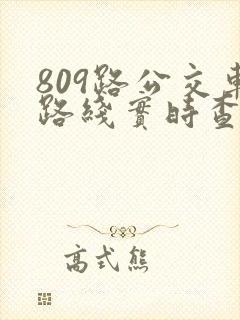 809路公交車
路綫實時查
高式熊